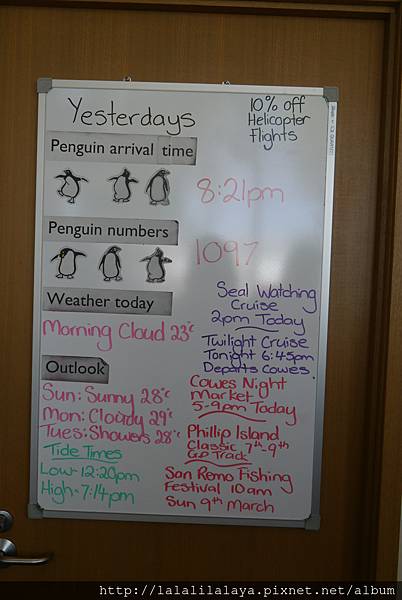 Yesterdays
10% off
Helicopter
Flights
Penguin arrival time
8:21pm
Penguin numbers
1097
Weather today
Morning Cloud 23°c
Outlook
Sun: Sunny 28°c
Mon: Cloudy 29°c
Tues: Showers 28°c
Tide Times
Low - 12:20pm
High - 7:14pm
Seal Watching
Cruise
2pm Today
Twilight Cruise
Tonight 6:45pm
Departs Cowes.
Cowes Night
Market
5-9pm Today
Phillip Island
Classic 7th-9th
GP Track
San Remo Fishing
Festival 10am
Sun 9th March
http://lalalilalaya.pixnet.net/album